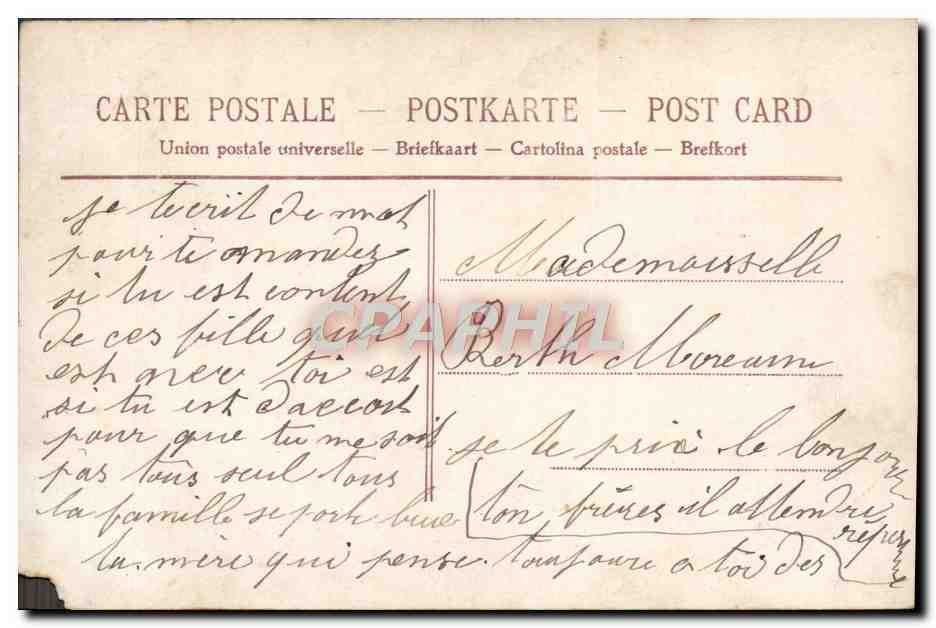 CARTE POSTALE — POSTKARTE — POST CARD
Union postale universelle — Briefkaart — Cartolina postale — Brefkort
je tecrit de mot
pour te mandez
si tu est content
de ces fille qui
est avec toi est
si tu est daccort
pour que tu me soit
pas tous seul tous
la famille se porte bien
ta mère qui pense toujours a toi des
Mademoisselle
Berth Moreau
je te prie le bonjour
ton frères il attendre
CPAPHIL